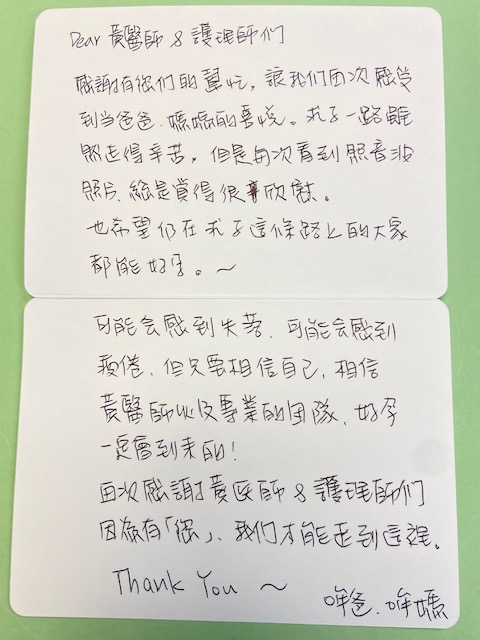 Dear 黃醫師 & 護理師们
感謝有您们的幫忙，讓我们再次感受
到当爸爸、媽媽的喜悅。求子一路雖
然走得辛苦，但是每次看到照音波
照片，總是覺得很欣慰。
也希望仍在求子這條路上的大家
都能好孕。～
可能会感到失落、可能会感到
疲倦，但只要相信自己，相信
黃醫師以及專業的团隊，好孕
一定會到来的！
再次感謝黃医師 & 護理師们
因為有「您」、我们才能走到這裡。
Thank You ～
哞爸、哞媽